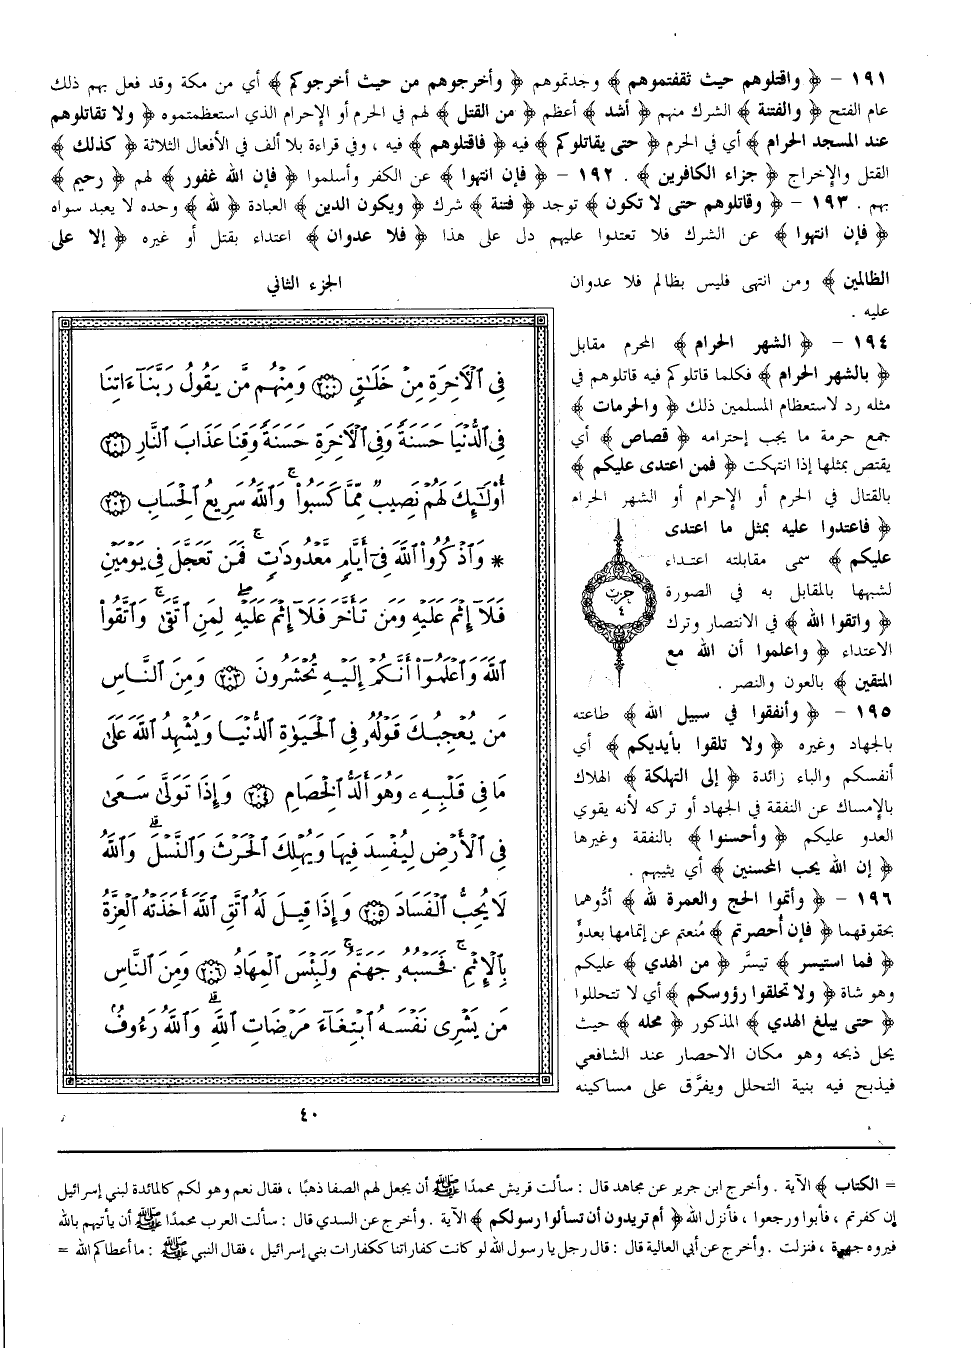 ١٩١ - ﴿ واقتلوهم حيث ثقفتموهم ﴾ وجدتموهم ﴿ وأخرجوهم من حيث أخرجوكم ﴾ أي من مكة وقد فعل بهم ذلك
عام الفتح ﴿ والفتنة ﴾ الشرك منهم ﴿ أشد ﴾ أعظم ﴿ من القتل ﴾ لهم في الحرم أو الإحرام الذي استعظمتموه ﴿ ولا تقاتلوهم
عند المسجد الحرام ﴾ أي في الحرم ﴿ حتى يقاتلوكم ﴾ فيه ﴿ فاقتلوهم ﴾ فيه ، وفي قراءة بلا ألف في الأفعال الثلاثة ﴿ كذلك ﴾
القتل والإخراج ﴿ جزاء الكافرين ﴾ . ١٩٢ - ﴿ فإن انتهوا ﴾ عن الكفر وأسلموا ﴿ فإن الله غفور ﴾ لهم ﴿ رحيم ﴾
بهم . ١٩٣ - ﴿ وقاتلوهم حتى لا تكون ﴾ توجد ﴿ فتنة ﴾ شرك ﴿ ويكون الدين ﴾ العبادة ﴿ لله ﴾ وحده لا يعبد سواه
﴿ فإن انتهوا ﴾ عن الشرك فلا تعتدوا عليهم دل على هذا ﴿ فلا عدوان ﴾ اعتداء بقتل أو غيره ﴿ إلا على
الظالمين ﴾ ومن انتهى فليس بظالم فلا عدوان
عليه .
١٩٤ - ﴿ الشهر الحرام ﴾ المحرم مقابل
﴿ بالشهر الحرام ﴾ فكلما قاتلوكم فيه قاتلوهم في
مثله رد لاستعظام المسلمين ذلك ﴿ والحرمات ﴾
جمع حرمة ما يجب إحترامه ﴿ قصاص ﴾ أي
يقتص بمثلها إذا انتهكت ﴿ فمن اعتدى عليكم ﴾
بالقتال في الحرم أو الإحرام أو الشهر الحرام
﴿ فاعتدوا عليه بمثل ما اعتدى
عليكم ﴾ سمى مقابلته اعتداء
لشبهها بالمقابل به في الصورة
﴿ واتقوا الله ﴾ في الانتصار وترك
الاعتداء ﴿ واعلموا أن الله مع
المتقين ﴾ بالعون والنصر .
١٩٥ - ﴿ وأنفقوا في سبيل الله ﴾ طاعته
بالجهاد وغيره ﴿ ولا تلقوا بأيديكم ﴾ أي
أنفسكم والباء زائدة ﴿ إلى التهلكة ﴾ الهلاك
بالإمساك عن النفقة في الجهاد أو تركه لأنه يقوي
العدو عليكم ﴿ وأحسنوا ﴾ بالنفقة وغيرها
﴿ إن الله يحب المحسنين ﴾ أي يثيبهم .
١٩٦ - ﴿ وأتموا الحج والعمرة لله ﴾ أدُّوهما
بحقوقهما ﴿ فإن أُحصرتم ﴾ مُنعتم عن إتمامها بعدوٍّ
﴿ فما استيسر ﴾ تيسَّر ﴿ من الهدي ﴾ عليكم
وهو شاة ﴿ ولا تحلقوا رؤوسكم ﴾ أي لا تتحللوا
﴿ حتى يبلغ الهدي ﴾ المذكور ﴿ محله ﴾ حيث
يحل ذبحه وهو مكان الاحصار عند الشافعي
فيذبح فيه بنية التحلل ويفرَّق على مساكينه
الجزء الثاني
فِى ٱلْآخِرَةِ مِنْ خَلَٰقٍ ٢٠٠ وَمِنْهُم مَّن يَقُولُ رَبَّنَآ ءَاتِنَا
فِى ٱلدُّنْيَا حَسَنَةً وَفِى ٱلْآخِرَةِ حَسَنَةً وَقِنَا عَذَابَ ٱلنَّارِ ٢٠١
أُوْلَٰٓئِكَ لَهُمْ نَصِيبٌ مِّمَّا كَسَبُوا۟ ۚ وَٱللَّهُ سَرِيعُ ٱلْحِسَابِ ٢٠٢
* وَٱذْكُرُوا۟ ٱللَّهَ فِىٓ أَيَّامٍ مَّعْدُودَٰتٍ ۚ فَمَن تَعَجَّلَ فِى يَوْمَيْنِ
فَلَآ إِثْمَ عَلَيْهِ وَمَن تَأَخَّرَ فَلَآ إِثْمَ عَلَيْهِ ۖ لِمَنِ ٱتَّقَىٰ ۗ وَٱتَّقُوا۟
ٱللَّهَ وَٱعْلَمُوٓا۟ أَنَّكُمْ إِلَيْهِ تُحْشَرُونَ ٢٠٣ وَمِنَ ٱلنَّاسِ
مَن يُعْجِبُكَ قَوْلُهُۥ فِى ٱلْحَيَوٰةِ ٱلدُّنْيَا وَيُشْهِدُ ٱللَّهَ عَلَىٰ
مَا فِى قَلْبِهِۦ وَهُوَ أَلَدُّ ٱلْخِصَامِ ٢٠٤ وَإِذَا تَوَلَّىٰ سَعَىٰ
فِى ٱلْأَرْضِ لِيُفْسِدَ فِيهَا وَيُهْلِكَ ٱلْحَرْثَ وَٱلنَّسْلَ ۗ وَٱللَّهُ
لَا يُحِبُّ ٱلْفَسَادَ ٢٠٥ وَإِذَا قِيلَ لَهُ ٱتَّقِ ٱللَّهَ أَخَذَتْهُ ٱلْعِزَّةُ
بِٱلْإِثْمِ ۚ فَحَسْبُهُۥ جَهَنَّمُ ۚ وَلَبِئْسَ ٱلْمِهَادُ ٢٠٦ وَمِنَ ٱلنَّاسِ
مَن يَشْرِى نَفْسَهُ ٱبْتِغَآءَ مَرْضَاتِ ٱللَّهِ ۗ وَٱللَّهُ رَءُوفٌۢ
حزب
٤
٤٠
= الكتاب ﴾ الآية . وأخرج ابن جرير عن مجاهد قال : سألت قريش محمدًا ﷺ أن يجعل لهم الصفا ذهبًا ، فقال نعم وهو لكم كالمائدة لبني إسرائيل
إن كفرتم ، فأبوا ورجعوا ، فأنزل الله ﴿ أم تريدون أن تسألوا رسولكم ﴾ الآية . وأخرج عن السدي قال : سألت العرب محمدًا ﷺ أن يأتيهم بالله
فيروه جهرة ، فنزلت . وأخرج عن أبي العالية قال : قال رجل يا رسول الله لو كانت كفاراتنا ككفارات بني إسرائيل ، فقال النبي ﷺ : ما أعطاكم الله =